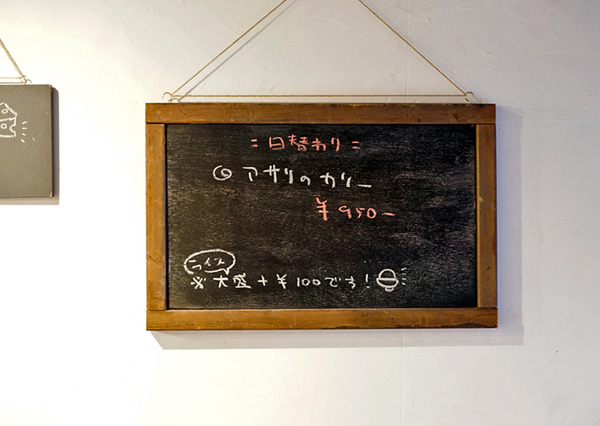 = 日替わり =
◎ アサリのカリー
¥950-
ライス
※大盛+¥100です!